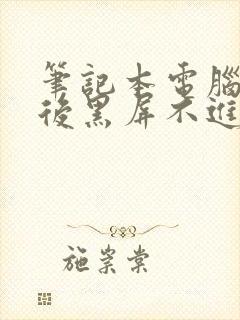 筆記本電腦
後黑屏不進
施崇棠